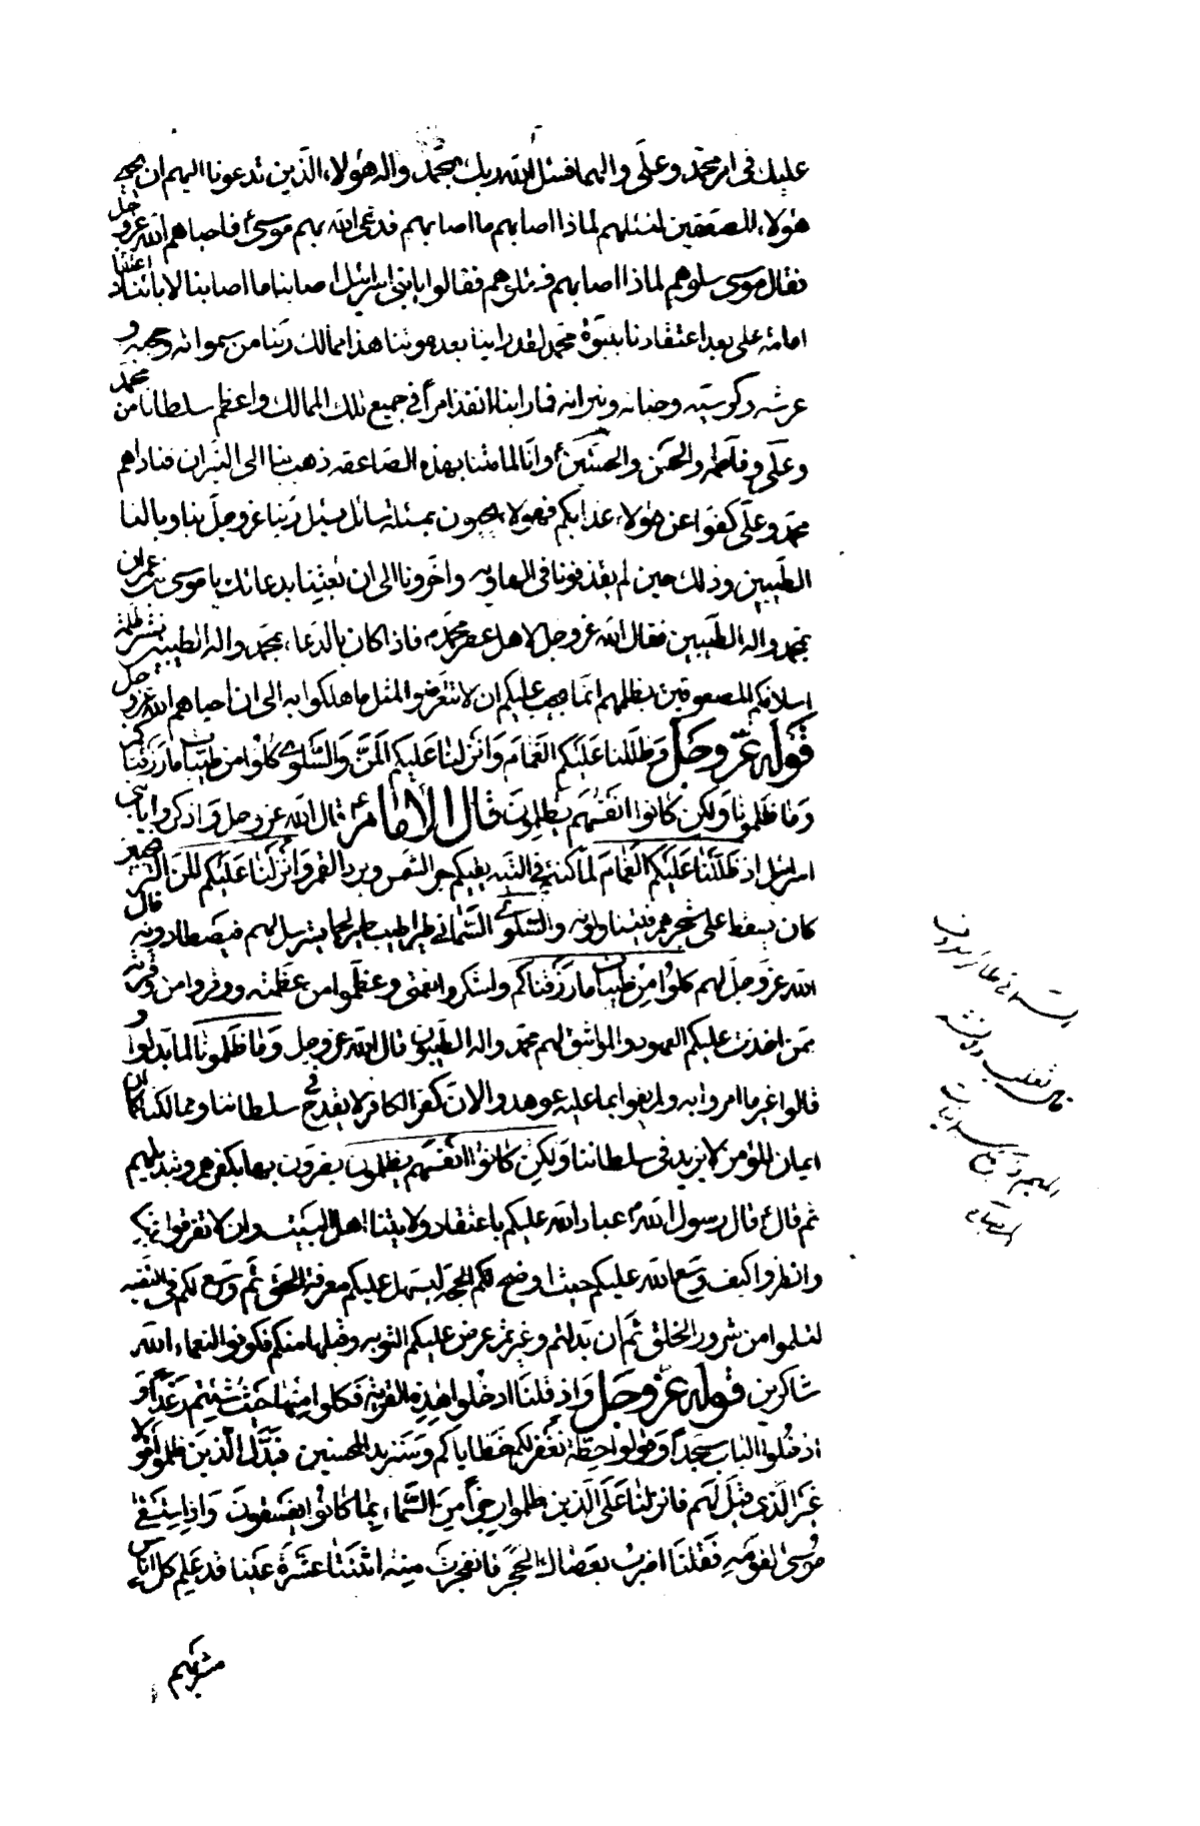 عليك في امر محمد وعلي والهما فسئل الله ربك بمحمد واله هؤلاء الذين تدعونا اليهم ان يحيى
هؤلاء المصعقين لنسئلهم لماذا اصابهم ما اصابهم فدعى الله بهم موسى فاحياهم الله عز و جل
فقال موسى سلوهم لماذا اصابهم فسئلوهم فقالوا يا بني اسرائيل اصابنا ما اصابنا لابائنا اعتقاد
امامة علي بعد اعتقادنا بنبوة محمد لقد راينا بعد موتنا هذا ممالك ربنا من سمواته وحجبه و
عرشه وكرسيه وجنانه ونيرانه فما راينا انفذ امرا في جميع تلك الممالك واعظم سلطانا من محمد
وعلي وفاطمة والحسن والحسين وانا لما متنا بهذه الصاعقة ذهب بنا الى النيران فناداهم
محمد وعلي كفوا عن هؤلاء عذابكم فهؤلاء يحيون بمسئلة سائل يسئل ربنا عز وجل بنا وبالنا
الطيبين وذلك حين لم يقذفونا في الهاوية واخرونا الى ان بعثنا بدعائك يا موسى بن عمران
بمحمد واله الطيبين فقال الله عز وجل لاهل عصر محمد فاذا كان بالدعاء بمحمد واله الطيبين نشر ظلمة
اسلافكم المصعوقين بظلمهم انما يجب عليكم ان لا تتعرضوا لمثل ما هلكوا به الى ان احياهم الله عز و جل
قوله عز وجل وظللنا عليكم الغمام وانزلنا عليكم المن والسلوى كلوا من طيبات ما رزقناكم
وما ظلمونا ولكن كانوا انفسهم يظلمون قال الامام قال الله عز وجل واذكروا يا بني
اسرائيل اذ ظللنا عليكم الغمام لما كنتم في التيه يقيكم حر الشمس وبرد القمر وانزلنا عليكم المن الترنجبين
كان يسقط على شجرهم فيتناولونه والسلوى السماني طير اطيب طير لحما يسترسل لهم فيصطادونه قال
الله عز وجل لهم كلوا من طيبات ما رزقناكم واشكروا نعمتي وعظموا من عظمته ووقروا من وقرته
ممن اخذت عليكم العهود والمواثيق لهم محمد واله الطيبين قال الله عز وجل وما ظلمونا لما بدلوا و
قالوا غير ما امروا به ولم يفوا بما عليه عوهدوا لان كفر الكافر لا يقدح في سلطاننا وممالكنا كما ان
ايمان المؤمن لا يزيد في سلطاننا ولكن كانوا انفسهم يظلمون يضرون بها بكفرهم وتبديلهم
ثم قال قال رسول الله عباد الله عليكم باعتقاد ولايتنا اهل البيت وان لا تفرقوا بيننا
وانظروا كيف وسع الله عليكم حيث اوضح لكم الحجة ليسهل عليكم معرفة الحق ثم وسع لكم في التقية
لتسلموا من شرور الخلق ثم ان بدلتم وغيرتم عرض عليكم التوبة وقبلها منكم فكونوا لنعماء الله
شاكرين قوله عز وجل واذ قلنا ادخلوا هذه القرية فكلوا منها حيث شئتم رغدا و
ادخلوا الباب سجدا وقولوا حطة نغفر لكم خطاياكم وسنزيد المحسنين فبدل الذين ظلموا قولا
غير الذي قيل لهم فانزلنا على الذين ظلموا رجزا من السماء بما كانوا يفسقون واذ استسقى
موسى لقومه فقلنا اضرب بعصاك الحجر فانفجرت منه اثنتا عشرة عينا قد علم كل اناس
مشربهم